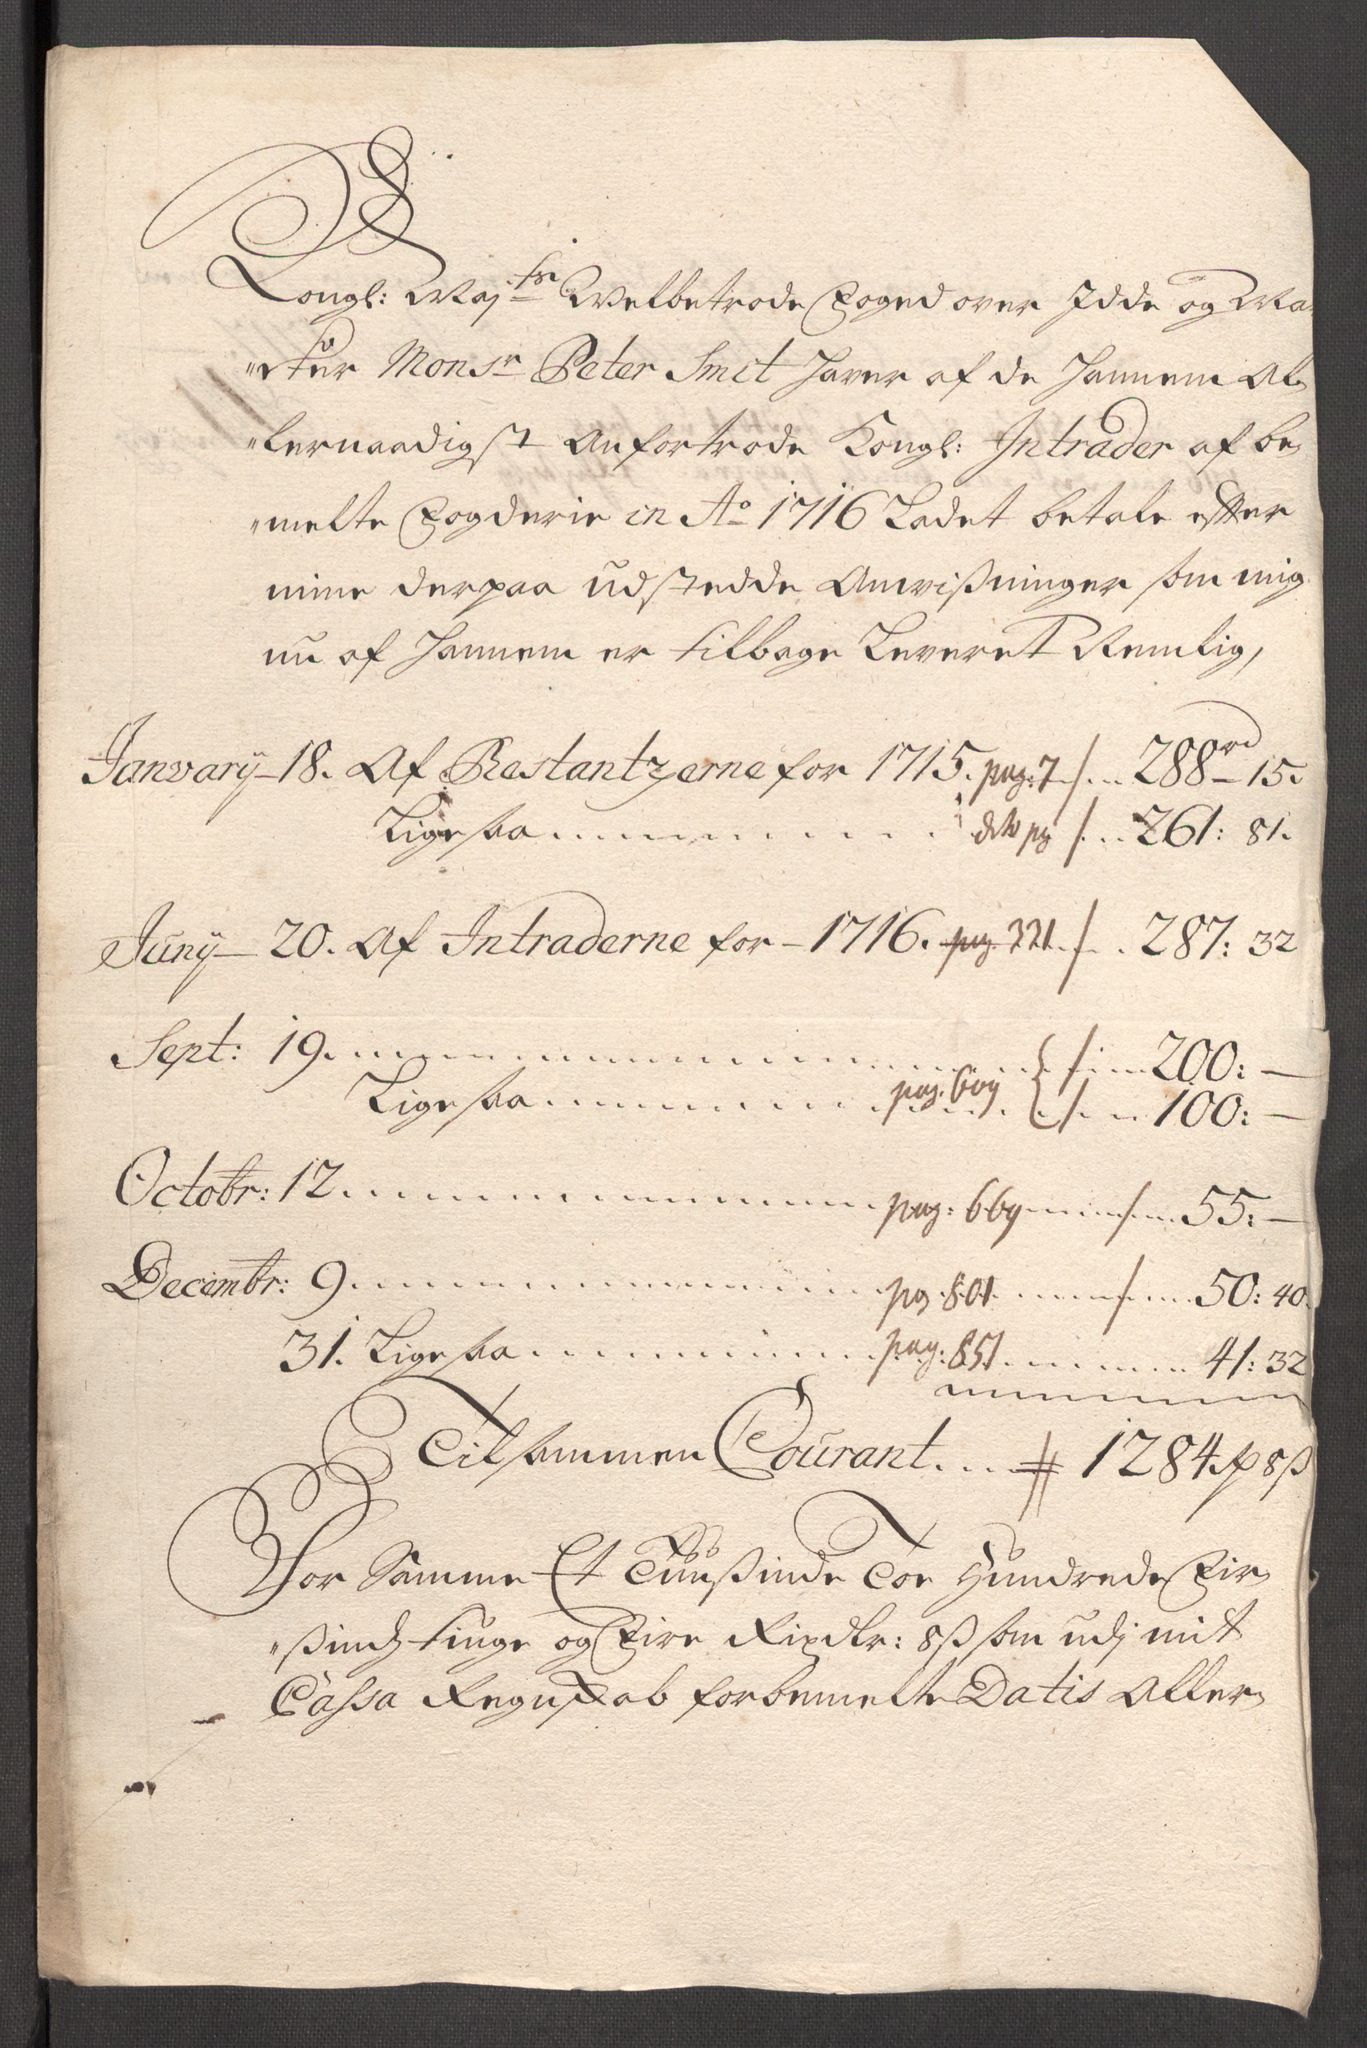 Kongl: May:ts Welbetrode Foged over Idde og Ma-
"rker Monsr Peter Smit haver af de hannem Al-
"lernaadigst Anfortrode Kongl: Intrader af be-
"melte Fogderie in Ao 1716 Ladet betale efter
mine derpaa udstedde Anvißninger som mig
nu af hannem er tilbage Leveret Nemlig,
Janvarÿ 18. Af Restantzerne for 1715. pag: 7 /... 288rd 15.
Ligesaa ... dito pag /... 261: 81.
Junÿ 20. Af Intraderne for 1716. pag. 221 /... 287: 32
Sept: 19. ... /... 200: —
Ligesaa ... pag. 609 /... 100: —
Octobr: 12. ... pag: 669 /... 55: —
Decembr: 9. ... pag 801 /... 50: 40.
31. Ligesaa ... pag. 851 ... 41: 32
Tilsammen Courant ... # 1284 rd 8 ß
Vor Samme Et Tuußinde Toe Hundrede Fir-
"ßindstiuge og Fire Rixdlr: 8 ß som udj mit
Cassa Regnskab forbemelte Datis Aller-